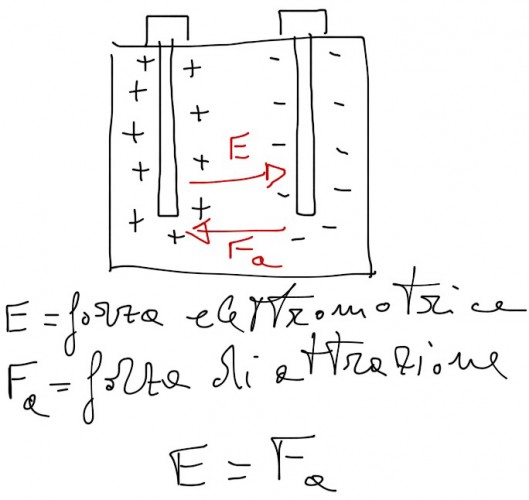 E
Fa
E = forza elettromotrice
Fa = forza di attrazione
E = Fa